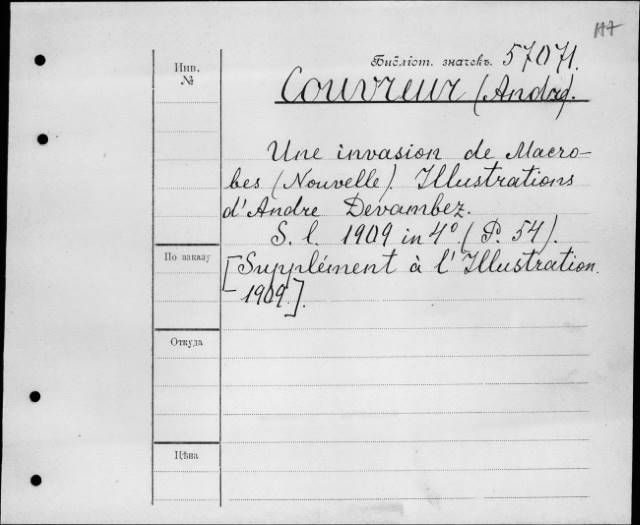 Инв.
№
Библіот. значекъ. 57071.
Couvreur (André).
Une invasion de Macro-
bes (Nouvelle). Illustrations
d'Andre Devambez.
S. l. 1909 in 4º. (P. 54).
По заказу
[Supplément à l'Illustration.
1909.].
Откуда
Цѣна